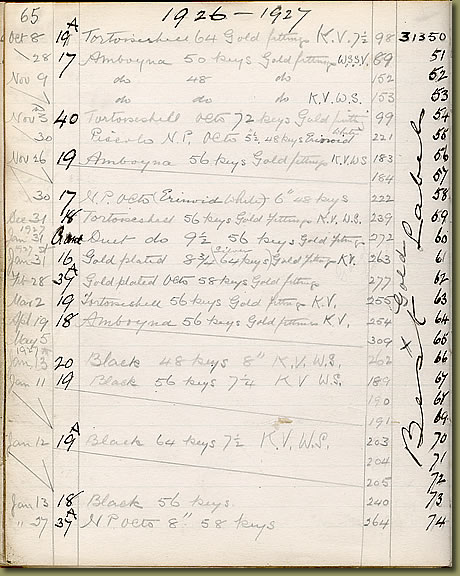 65 1926 – 1927
Oct 8 19A Tortoiseshell 64 Gold fittings K.V. 7½ 98 31350
" 28 17 Amboyna 50 keys Gold fittings W.S.S.V. 69 51
Nov 9 do 48 do 152 52
do do do K.V.W.S. 153 53
Nov 3 40 Tortoiseshell Octo 72 keys Gold 99 54
30 Piccolo N.P. Octo 5½, 48 keys Erinoid White 221 55
Nov 26 19 Amboyna 56 keys Gold fittings K.V.W.S 183 56
184 57
30 17 N.P. Octo (Erinoid White) 6" 48 keys 222 58
Dec 31 18 Tortoiseshell 56 keys Gold Fittings K.V. W.S. 239 59
1927
Jan 31 Duet do 9½ 56 keys Gold fittings 272 60
Jan 31 16 Gold plated 8¾ 64 keys Gold fittings K.V. 263 61
Feb 28 39A Gold plated Octo 58 keys Gold fittings 277 62
Mar 2 19 Tortoiseshell 56 keys Gold fittings K.V. 255 63
Apl 19 18 Amboyna 56 keys Gold fittings K.V. 254 64
May 5 309 65
Jan 13 20 Black 48 keys 8" K.V. W.S. 262 66
Jan 11 19 Black 56 keys 7¼ K V W.S. 189 67
190
191 69
Jan 12 19A Black 64 keys 7½ K.V. W.S. 203 70
204 71
205 72
Jan 13 18 Black 56 keys 240 73
" 27 39A N.P. Octo 8" 58 keys 264 74
Gold Labels